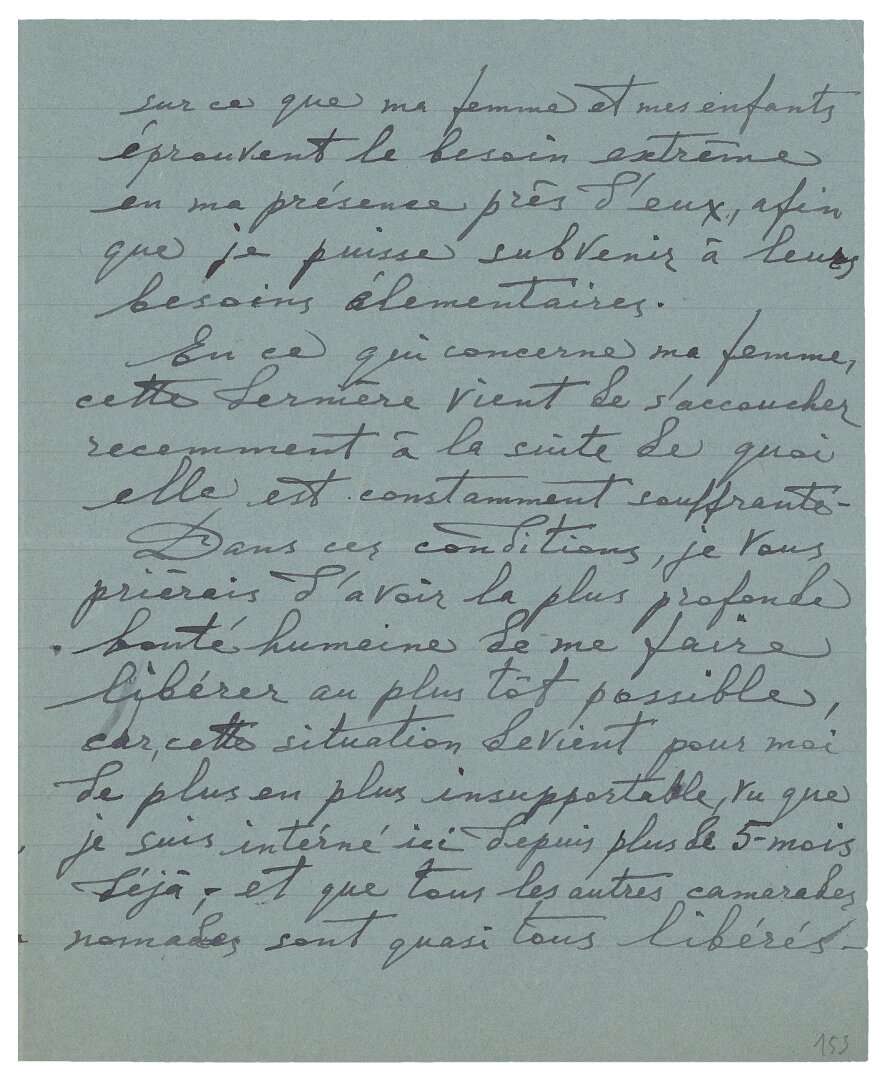 sur ce que ma femme et mes enfants
éprouvent le besoin extrême
en ma présence près d'eux, afin
que je puisse subvenir à leurs
besoins élementaires.
En ce qui concerne ma femme,
cette dernière vient de s'accoucher
recemment à la suite de quoi
elle est constamment souffrante-
Dans ces conditions, je vous
prièrais d'avoir la plus profonde
bonté humaine de me faire
libérer au plus tôt possible,
car, cette situation devient pour moi
de plus en plus insupportable, vu que
je suis intérné ici depuis plus de 5-mois
déjà, et que tous les autres camarades
nomades sont quasi tous libérés-
153